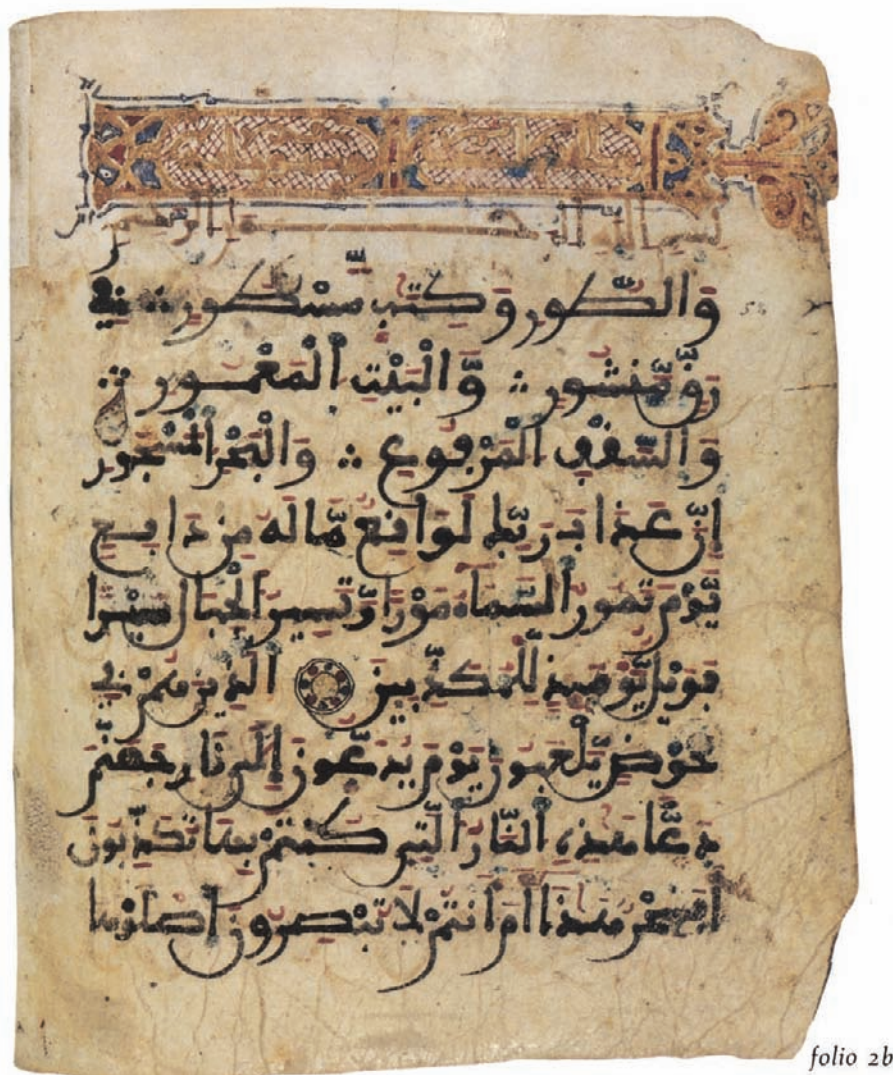 بسم الله الرحمن الرحيم
وَالطُّورِ وَكِتَٰبٍ مَّسْطُورٍ فِي
رَقٍّ مَّنشُورٍ وَّالْبَيْتِ الْمَعْمُورِ
وَالسَّقْفِ الْمَرْفُوعِ وَالْبَحْرِ الْمَسْجُورِ
إِنَّ عَذَابَ رَبِّكَ لَوَٰقِعٌ مَّا لَهُ مِن دَافِعٍ
يَّوْمَ تَمُورُ السَّمَآءُ مَوْرًا وَّتَسِيرُ الْجِبَالُ سَيْرًا
فَوَيْلٌ يَّوْمَئِذٍ لِّلْمُكَذِّبِينَ الَّذِينَ هُمْ فِي
خَوْضٍ يَّلْعَبُونَ يَوْمَ يُدَعُّونَ إِلَىٰ نَارِ جَهَنَّمَ
دَعًّا هَٰذِهِ النَّارُ الَّتِي كُنتُمْ بِهَا تُكَذِّبُونَ
أَفَسِحْرٌ هَٰذَا أَمْ أَنتُمْ لَا تُبْصِرُونَ اصْلَوْهَا
folio 2b